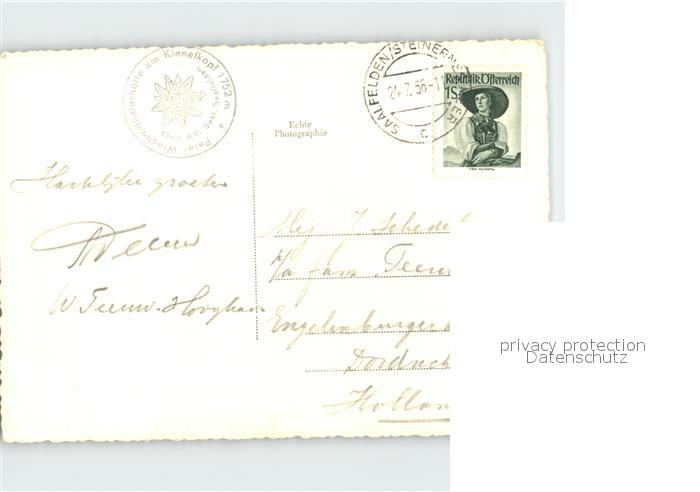 Peter Wiechenthalerhütte am Kienalkopf 1752 m
Oest. AV. Sekt. Saalfelden
SAALFELDEN/STEINERNES MEER
24.7.56-11
c
Republik Österreich
1S
Echte
Photographie
Hartelijke groeten
Teeuw
W Teeuw-Hoogha
Mej J Schedel
p/a fam Teeuw
Engelenburger
Dordrech
Hollan
privacy protection
Datenschutz